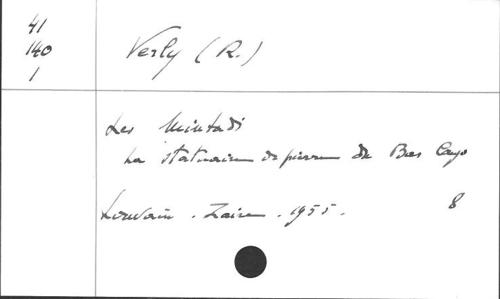 41
140
1
Verly (R.)
Les Mintadi
La statuaire de pierre du Bas Congo
Louvain. Zaïre. 1955.
8